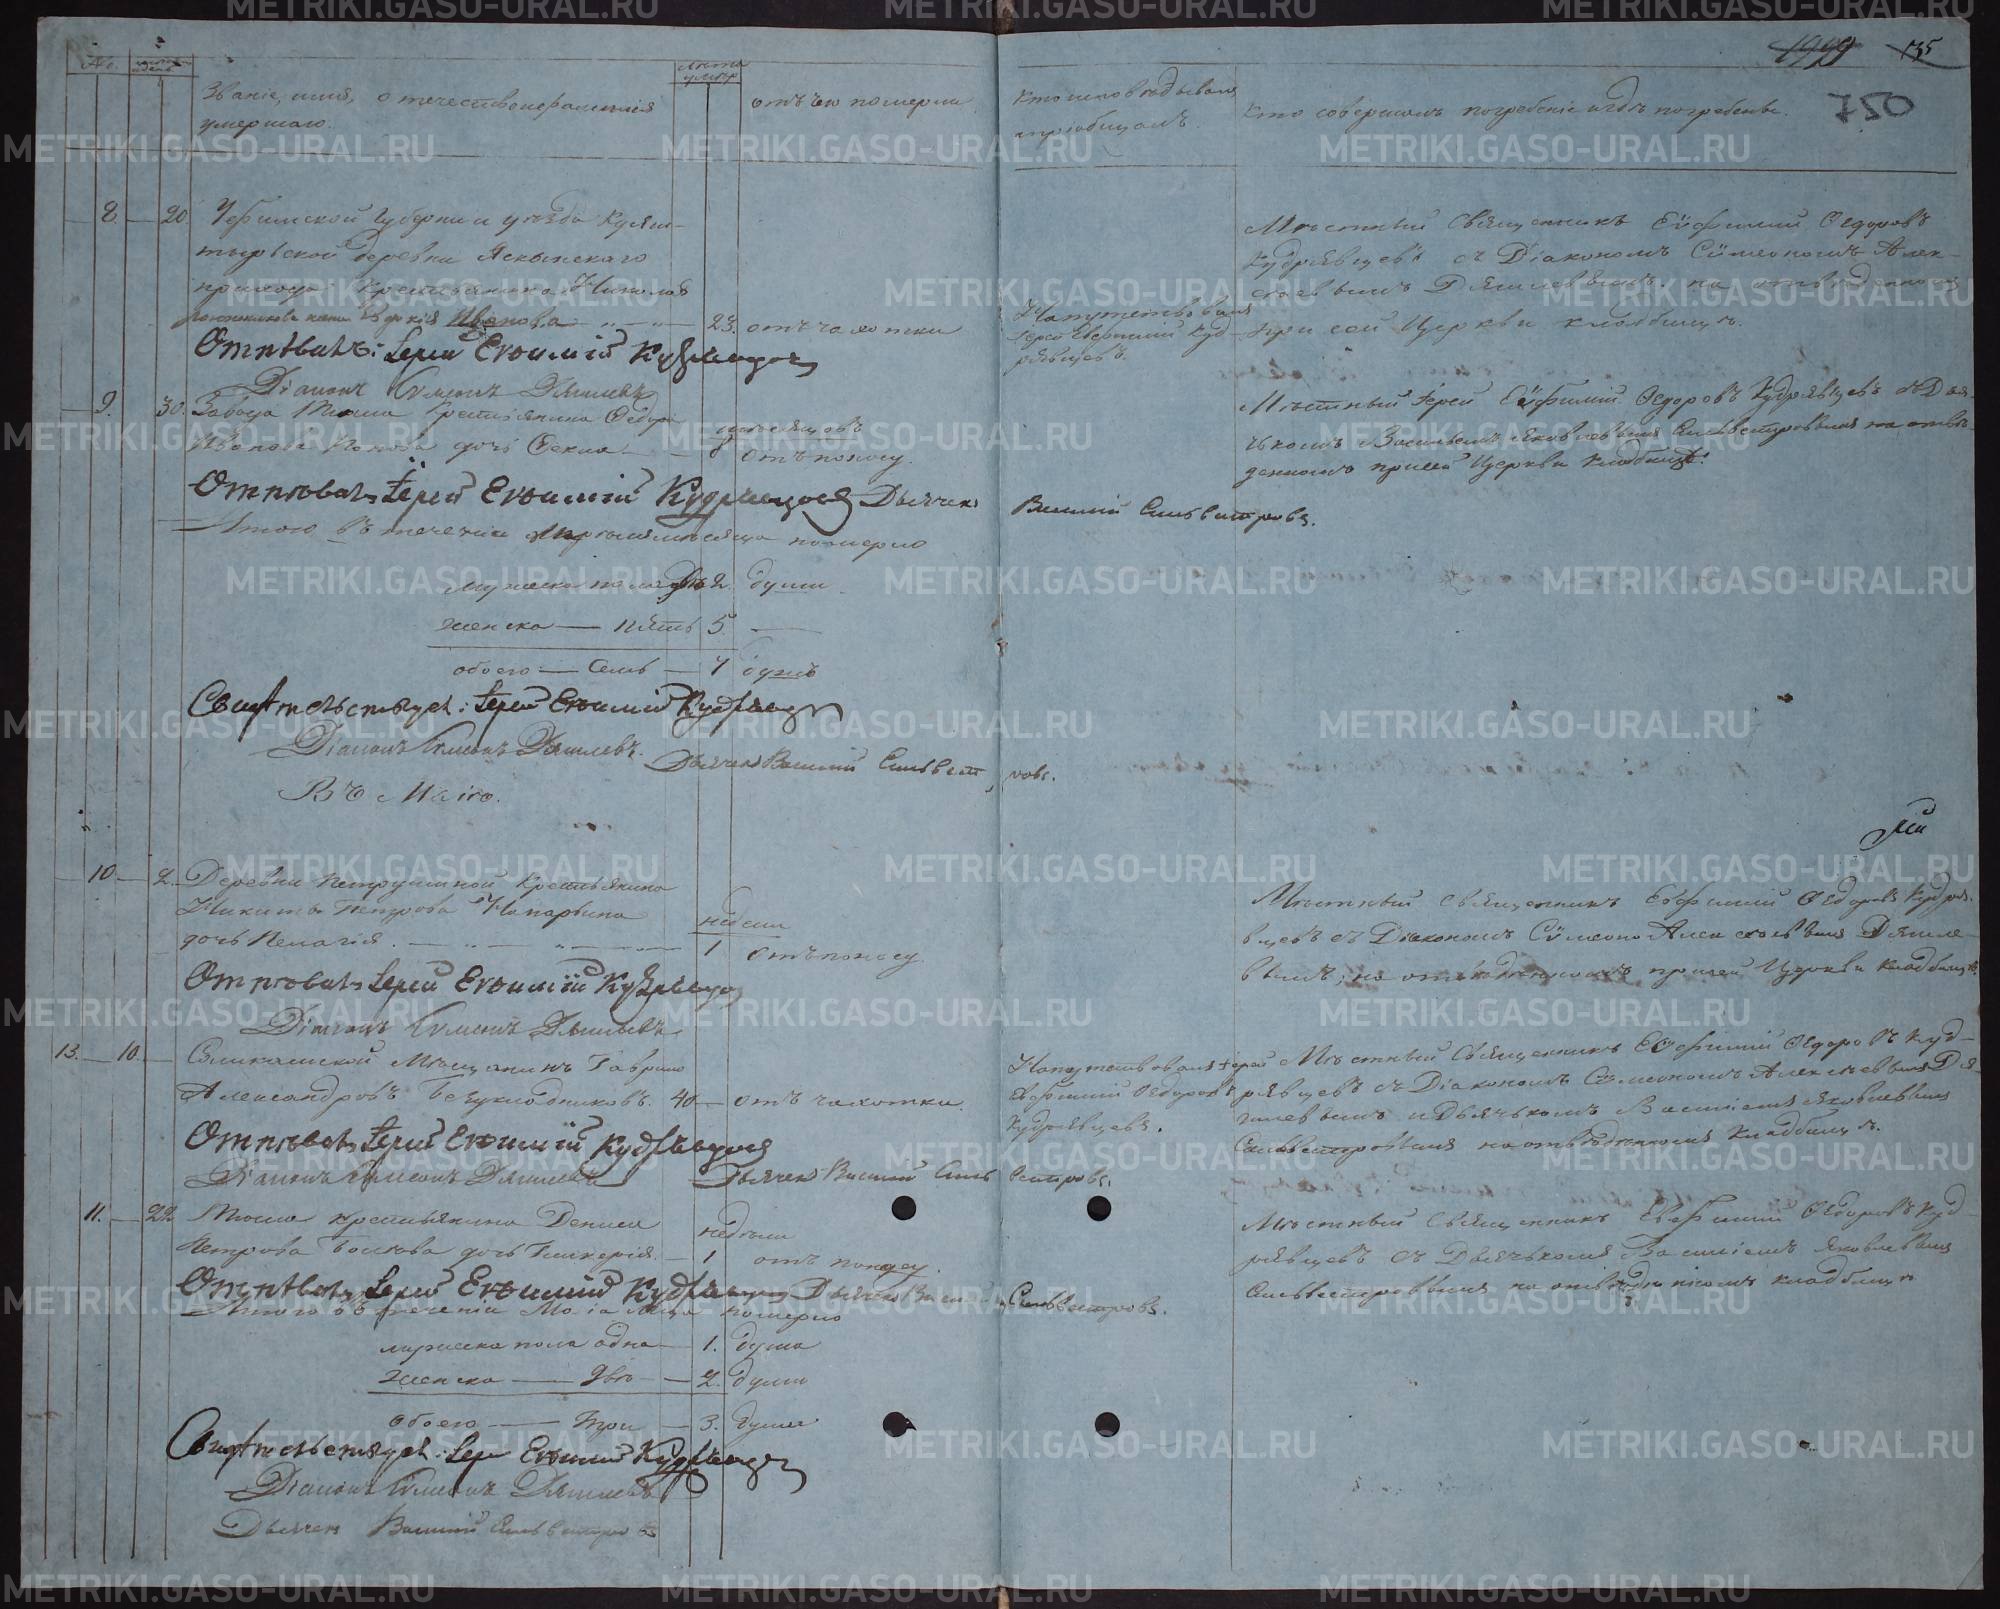 1990 135
750
№.
Званіе, имя, отечество и фамилія
умершаго.
Лѣта
умер.
отъ чего померли
Кто исповѣдывалъ
и пріобщалъ.
Кто совершалъ погребеніе и гдѣ погребены.
8. 20 Уфимской Губерніи и уѣзда
деревни
прихода Крестьянина
жена Евдокія Иванова 23. отъ чахотки
Напутствовалъ
Іерей Евфимій Куд-
рявцевъ.
Мѣстный Священникъ Еѵфимій Ѳедоровъ
Кудрявцевъ съ Діакономъ Сѵмеономъ Алек-
сѣевымъ на отведенномъ
при сей Церкви кладбищѣ.
Отпѣвалъ: Іерей Евѳимій Кудрявцевъ
Діаконъ Сѵмеонъ
9. 30. Завода Крестьянина Ѳедора
Иванова Попова дочь Ѳекла
мѣсяцовъ
8 отъ поносу.
Мѣстный Іерей Еѵфимій Ѳедоровъ Кудрявцевъ съ Дья-
чькомъ Васильемъ Яковлевымъ Сильвестровымъ на отве-
денномъ при сей Церкви кладбищѣ.
Отпѣвалъ Іерей Евѳимій Кудрявцевъ Дьячекъ Василій Сильвестровъ.
Итого въ теченіи Апрѣля мѣсяца померло
мужеска пола двѣ 2. души
женска — пять 5. —
обоего — Семь — 7 душъ
Свидѣтельствуетъ: Іерей Евѳимій Кудрявцевъ
Діаконъ Сѵмеонъ
Дьячекъ Василій Сильвестровъ.
Въ Маіѣ.
Маій
10. 2. Деревни Крестьянина
Никиты Петрова
дочь Пелагія.
недели
1 отъ поносу
Мѣстный Священникъ Еѵфимій Ѳедоровъ Кудряв-
цевъ съ Діакономъ Сѵмеономъ Алексѣевымъ
на отведенномъ при сей Церкви кладбищѣ.
Отпѣвалъ Іерей Евѳимій Кудрявцевъ
Діаконъ Сѵмеонъ
13. 10. Соликамской Мѣщанинъ Гаврило
Александровъ Безукладниковъ. 40 отъ чахотки.
Напутствовалъ Іерей
Еѵфимій Ѳедоровъ
Кудрявцевъ.
Мѣстный Священникъ Еѵфимій Ѳедоровъ Куд-
рявцевъ съ Діакономъ Сѵмеономъ Алексѣевымъ
и Дьячькомъ Василіемъ Яковлевымъ
Сильвестровымъ на отведенномъ Кладбищѣ.
Отпѣвалъ Іерей Евѳимій Кудрявцевъ
Діаконъ Сѵмеонъ Дьячекъ Василій Сильвестровъ.
11. 22 крестьянина Дениса
Петрова дочь Гликерія.
недели
1 отъ поносу.
Мѣстный Священникъ Евфимій Ѳедоровъ Куд-
рявцевъ съ Дьячькомъ Василіемъ Яковлевымъ
Сильвестровымъ на отведенномъ кладбищѣ
Отпѣвалъ Іерей Евѳимій Кудрявцевъ Дьячекъ Василій Сильвестровъ.
Итого въ теченіи Маія мѣсяца померло
мужеска пола одна — 1. душа
женска — двѣ — 2. души
обоего — три — 3. души
Свидѣтельствуетъ: Іерей Евѳимій Кудрявцевъ
Діаконъ Сѵмеонъ
Дьячекъ Василій Сильвестровъ
METRIKI.GASO-URAL.RU